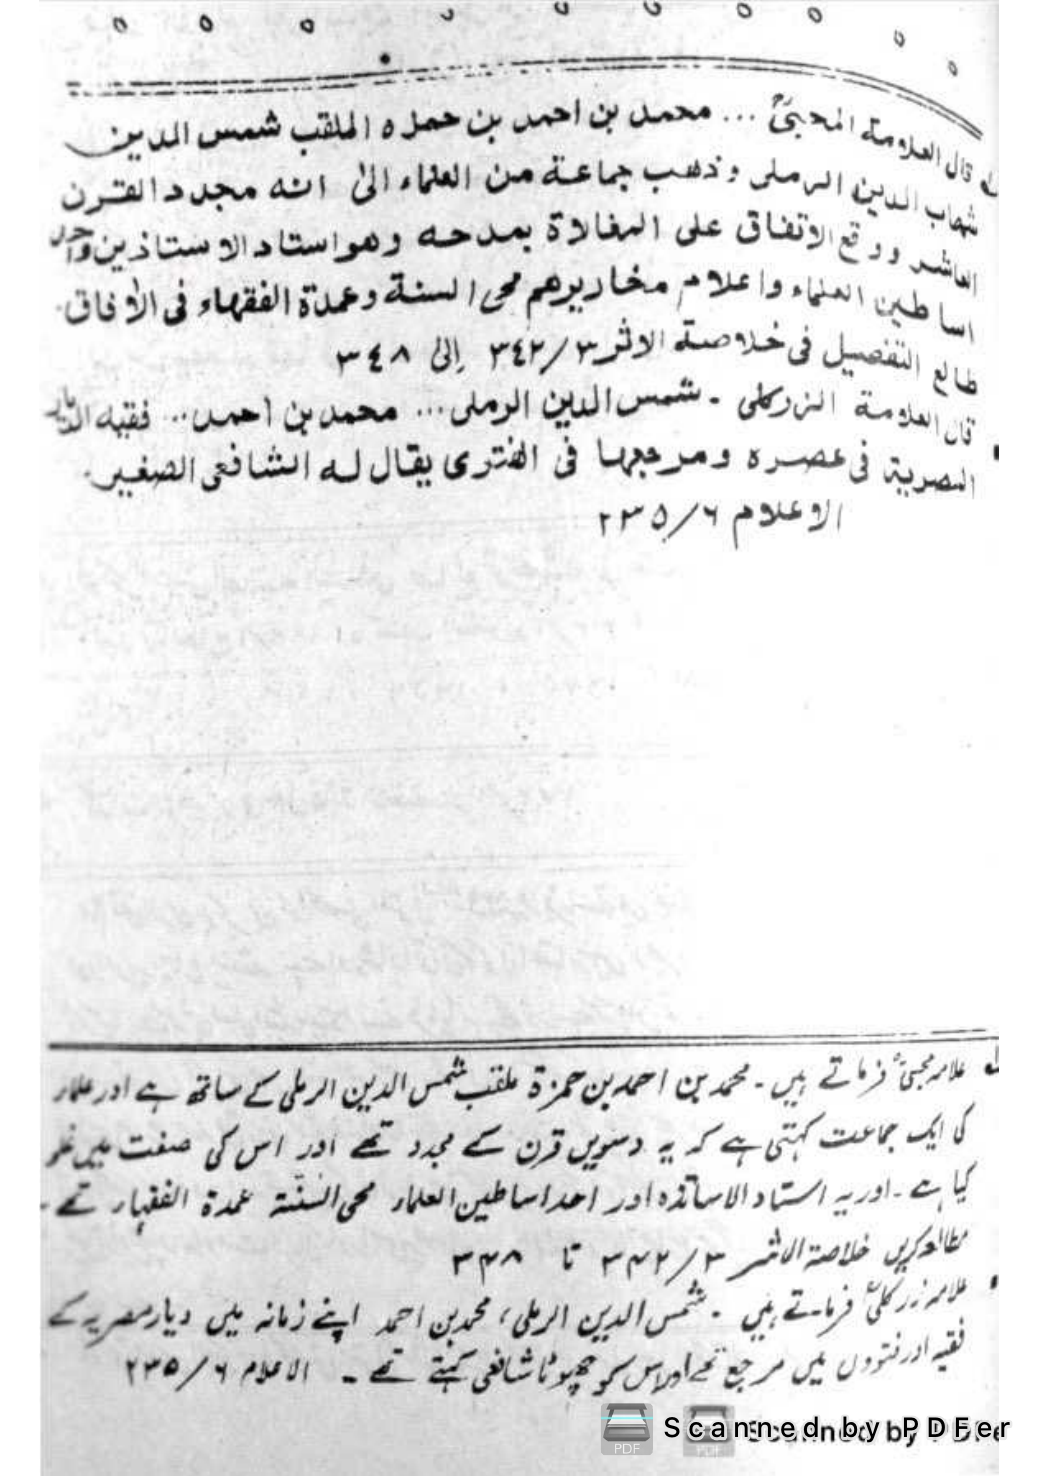 قال العلامة المحبیؒ ... محمد بن احمد بن حمزه الملقب شمس الدین
شهاب الدین الرملی وذهب جماعة من العلماء الیٰ انه مجدد القرن
العاشر ووقع الاتفاق علی المغالاة بمدحه وهو استاد الاستاذین واحد
اساطین العلماء واعلام مخاریرهم محی السنة وعمدة الفقهاء فی الآفاق.
طالع التفصیل فی خلاصة الاثر ٣/٣٤٢ إلی ٣٤٨
قال العلامة الزرکلی ۔ شمس الدین الرملی ... محمد بن احمد ... فقیه
المصریة فی عصره ومرجعها فی الفتوی یقال له الشافعی الصغیر.
الاعلام ٦/٢٣٥
علامہ محبیؒ فرماتے ہیں ۔ محمد بن احمد بن حمزة ملقب شمس الدین الرملی کے ساتھ ہے اور علماء
کی ایک جماعت کہتی ہے کہ یہ دسویں قرن کے مجدد تھے اور اس کی صفت میں
کیا ہے ۔ اور یہ استاد الاساتذہ اور احد اساطین العلماء محی السنّة عمدة الفقہاء تھے ۔
مطالعہ کریں خلاصة الاثر ۳/۳۴۲ تا ۳۴۸
علامہ زرکلیؒ فرماتے ہیں ۔ شمس الدین الرملی، محمد بن احمد اپنے زمانہ میں دیار مصریہ کے
فقیہ اور فتووں میں مرجع تھے اور اس کو چھوٹا شافعی کہتے تھے ۔ الاعلام ۶/۲۳۵
Scanned by PDFer
Scanned by PDFe